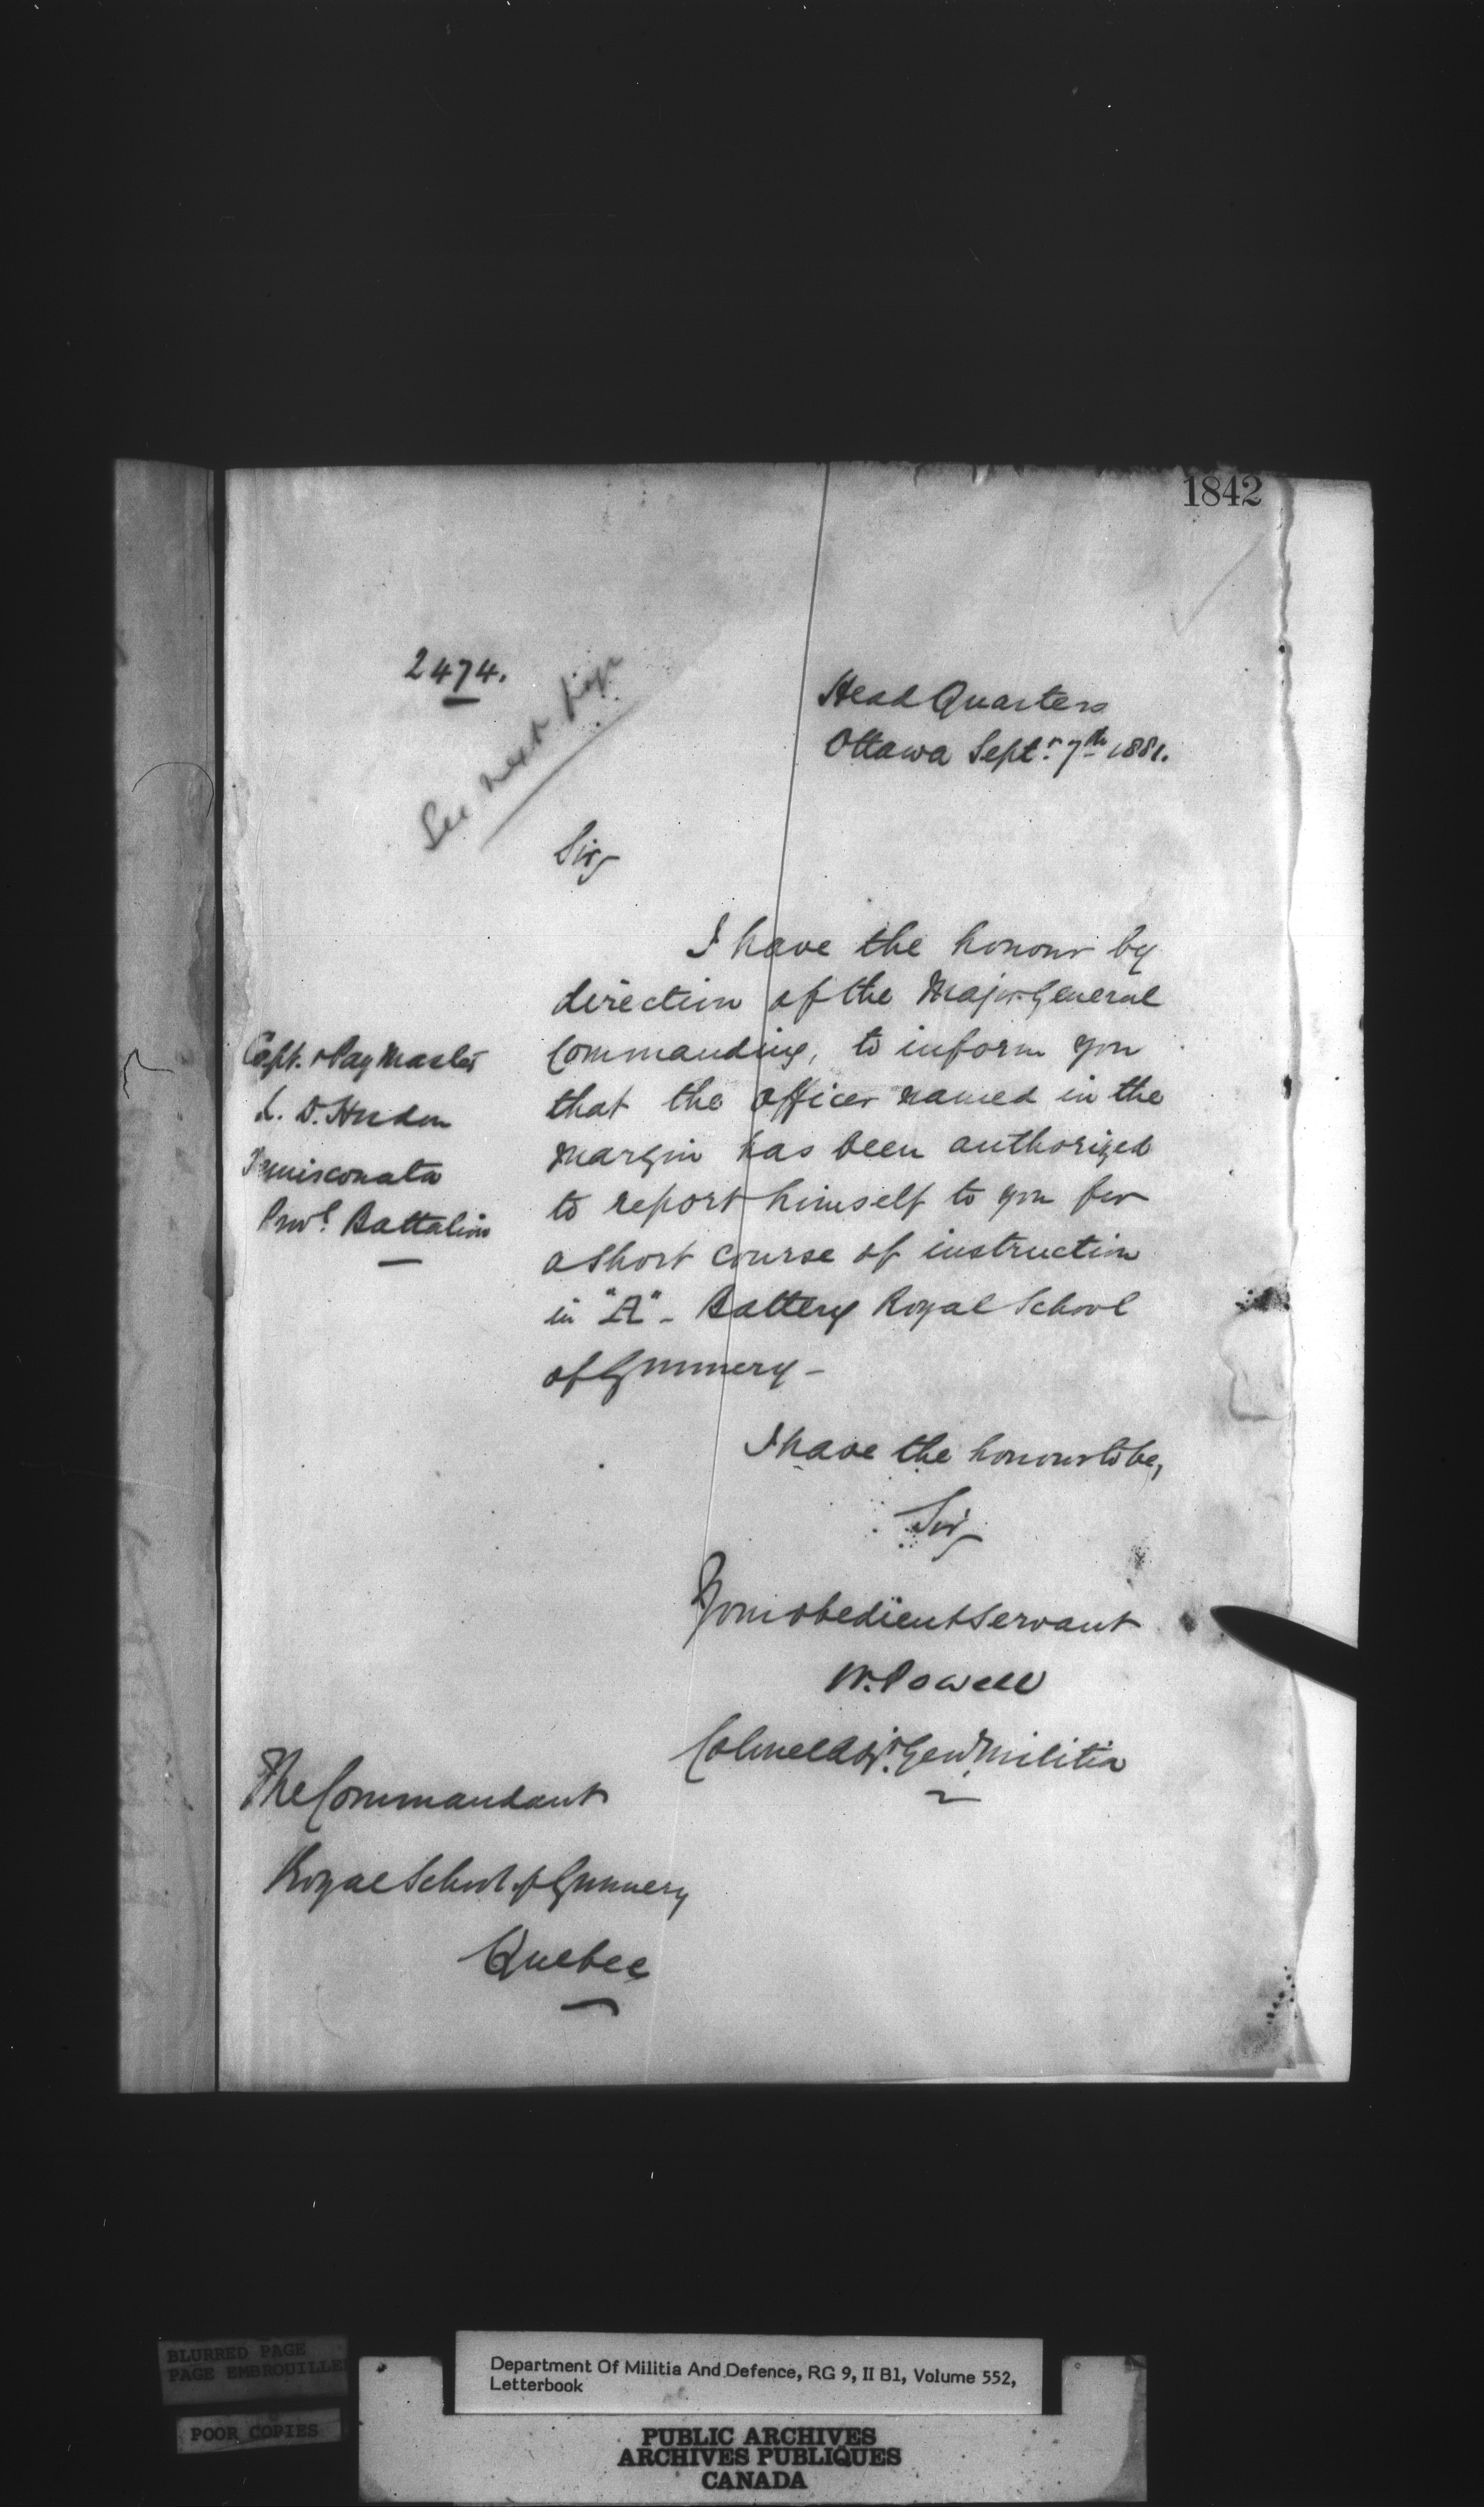 1842
2474.
See next page
Head Quarters
Ottawa Septr. 7th 1881.
Sir,
I have the honour by
direction of the Major General
Commanding, to inform you
that the officer named in the
margin has been authorized
to report himself to you for
a short course of instruction
in "A" - Battery Royal School
of Gunnery -
Capt. & Pay Master
L. D. Hudon
Temisconata
Provl. Battalion
I have the honour to be,
Sir,
Your obedient servant
W. Powell
Colonel Adjt. Genl. Militia
The Commandant
Royal School of Gunnery
Quebec
BLURRED PAGE
PAGE EMBROUILLE
POOR COPIES
Department Of Militia And Defence, RG 9, II B1, Volume 552,
Letterbook
PUBLIC ARCHIVES
ARCHIVES PUBLIQUES
CANADA